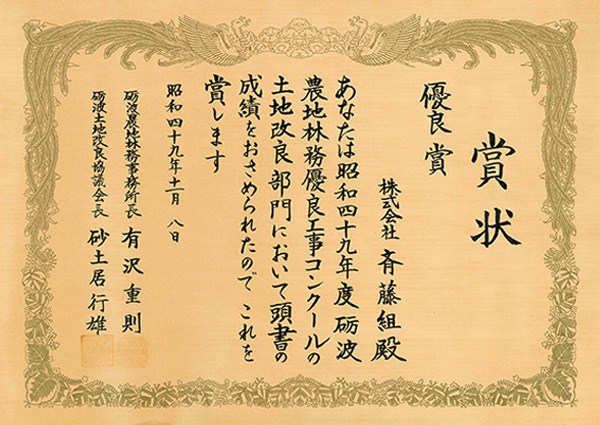 賞状
優良賞
株式会社 斉藤組殿
あなたは昭和四十九年度砺波
農地林務優良工事コンクールの
土地改良部門において頭書の
成績をおさめられたので これを
賞します
昭和四十九年十一月 八日
砺波農地林務事務所長 有沢重則
砺波土地改良協議会長 砂土居行雄